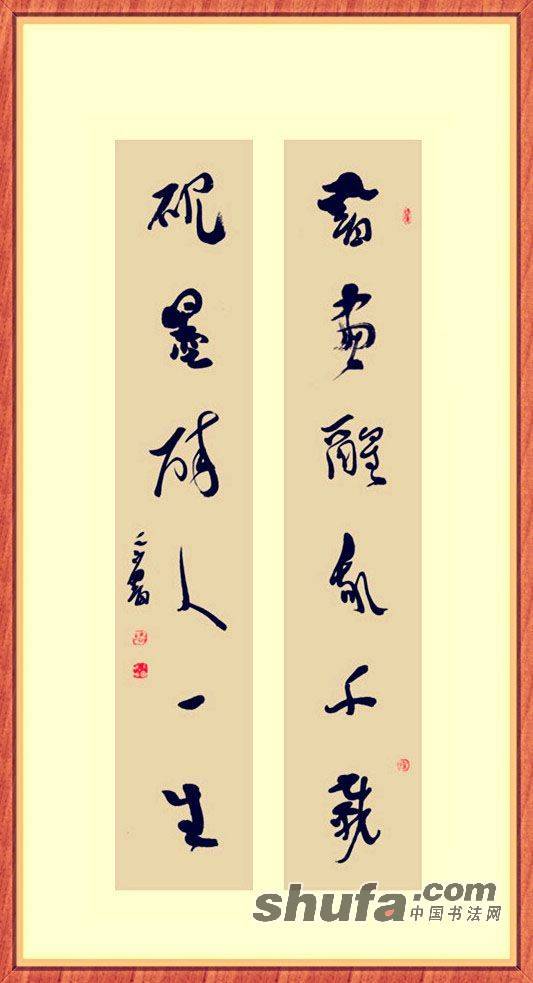 書畫醒千載
硯墨醉人一生
shufa.com
中国书法网